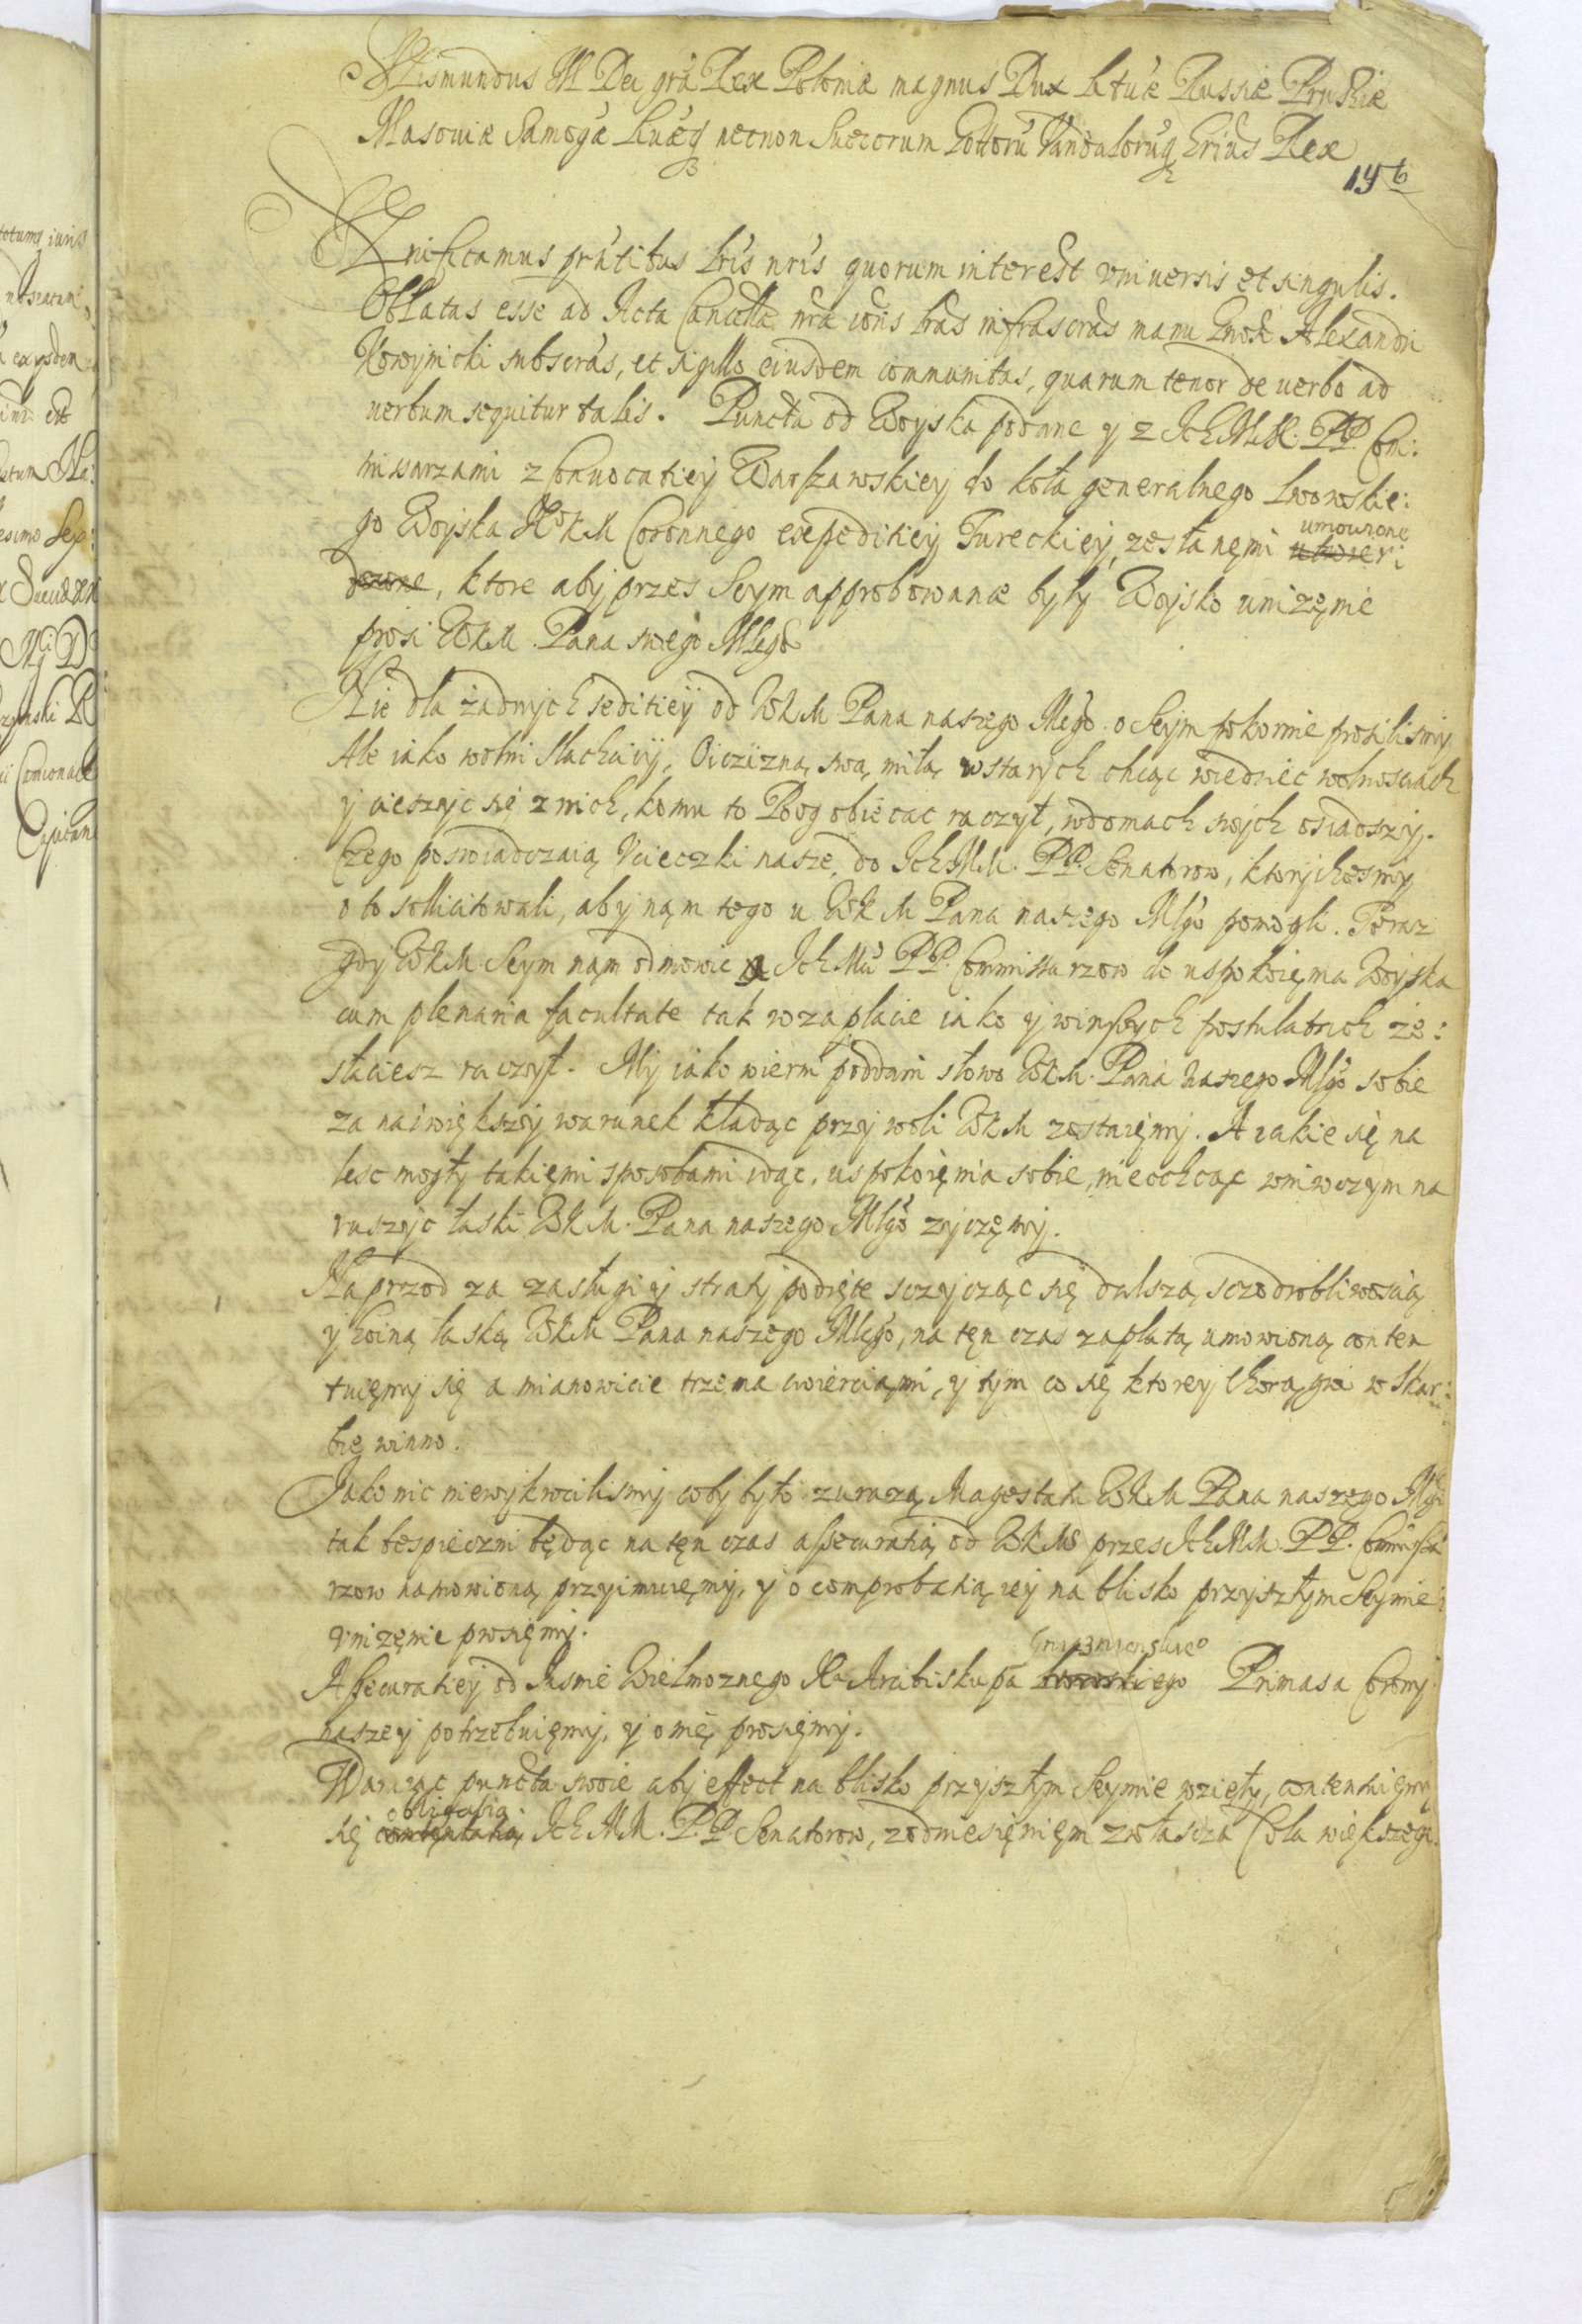 Sigismundus III Dei grã Rex Poloniæ magnus Dux Lituæ Russiæ Prussiæ
Masoviæ Samogæ Livæq necnon Suecorum Gottorũ Vandalorũq Hrius Rex
Significamus pñtibus lris nris quorum interest vniuersis et singulis.
Oblatas esse ad Acta Cancellæ nræ ras infrascras manu Alexandri
subscras, et sigillo eiusdem communitas, quarum tenor de uerbo ad
uerbum sequitur talis. Puncta od Woyska podane y z IchMM. PP. Com:
missarzami z Conuocatiey Warszawskiey do koła generalnego Lwowskie:
go Woyska JKM Coronnego expeditiey Tureckiey zesłanęmi umowione utwier:
dzone, ktore aby przes Seym approbowanæ były Woysko uniżęnie
prosi WKM. Pana swego Mlego
Nie dla żadnych seditiey od WKM Pana naszego Mlego. o Seym pokornie prosilismy
Ale iako wolni slachcicy, Oiczizną swą miłą w starych chcąc widziec wolnosciach
y cieszyc się z nich, komu to Boog obiecac raczył, w domach swych osiadszy.
Czego poswiadczaią Vcieczki nasze, do IchMM. PP. Senatorow, ktorychesmy
o to sollicitowali, aby nąm tego u WKM Pana naszego Mlgo pomogli. Teraz
gdy WKM Seym nąm odmowic a IchMĉ PP. Commissarzow do uspokoięnia Woyska
cum plenaria facultate tak w zaplacie iako y w inszych postulatiech ze:
słaciesz raczył. My iako wierni poddani słowo WKM. Pana naszego Mlgo sobie
za naiwiększy warunek kładąc przy woli WKM zostaięmy. A iakie się na
lesc mogły takięmi sposobami idąc, uspokoięnia sobie, niechcąc w niwczym na
ruszyc łaski WKM. Pana naszego Mlgo zyczęmy.
Naprzod za zasługi y straty podięte sczycząc się dalszą sczodrobliwoscią
y hoiną łaską WKM Pana naszego Mlego, na tęn czas zapłatą umowioną conten
tuięmy się a mianowicie trzęma cwierciąmi, y tym co się ktorey chorągwi w Skar:
bię winno.
Jako nic niewykroczilismy coby było z urazą Magestatu WKM Pana naszego Mlgo
tak bespieczni będąc na tęn czas assecuratią od WKM przes IchMM. PP. Commissa
rzow namowioną przyimuięmy, y o comprobatią iey na blisko przyszłym Seymie
vniżęnie prosięmy.
Assecuratiey od Jasnie Wielmoznego Xa Arcibiskupa Gnieznienskiego Lwowskiego Primasa Corony
naszey potrzebuięmy, y o nię prosięmy.
Waruiąc puncta swoie aby effect na blisko przyszłym Seymie wzięły, contentuięmy
się obligatią contentatią IchMM. PP. Senatorow, z odniesięnięm zwłascza Coła większego.